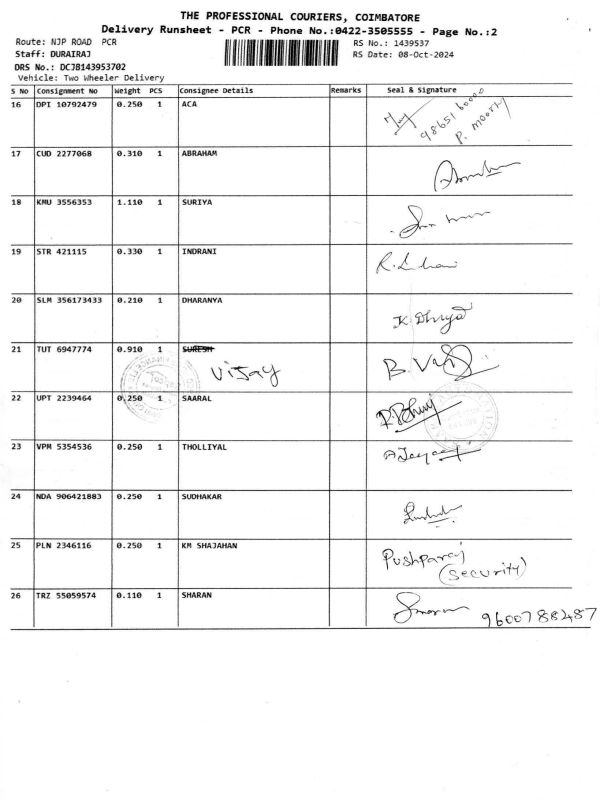 THE PROFESSIONAL COURIERS, COIMBATORE
Delivery Runsheet - PCR - Phone No.:0422-3505555 - Page No.:2
Route: NJP ROAD PCR
RS No.: 1439537
Staff: DURAIRAJ
RS Date: 08-Oct-2024
DRS No.: DCJB143953702
Vehicle: Two Wheeler Delivery
S No Consignment No Weight PCS Consignee Details Remarks Seal & Signature
16 DPI 10792479 0.250 1 ACA
98651 60000
P. Moorthy
17 CUD 2277068 0.310 1 ABRAHAM
18 KMU 3556353 1.110 1 SURIYA
19 STR 421115 0.330 1 INDRANI
20 SLM 356173433 0.210 1 DHARANYA
21 TUT 6947774 0.910 1 SURESH
Vijay
22 UPT 2239464 0.250 1 SAARAL
23 VPM 5354536 0.250 1 THOLLIYAL
24 NDA 906421883 0.250 1 SUDHAKAR
25 PLN 2346116 0.250 1 KM SHAJAHAN
Pushparaj
(Security)
26 TRZ 55059574 0.110 1 SHARAN
9600788487